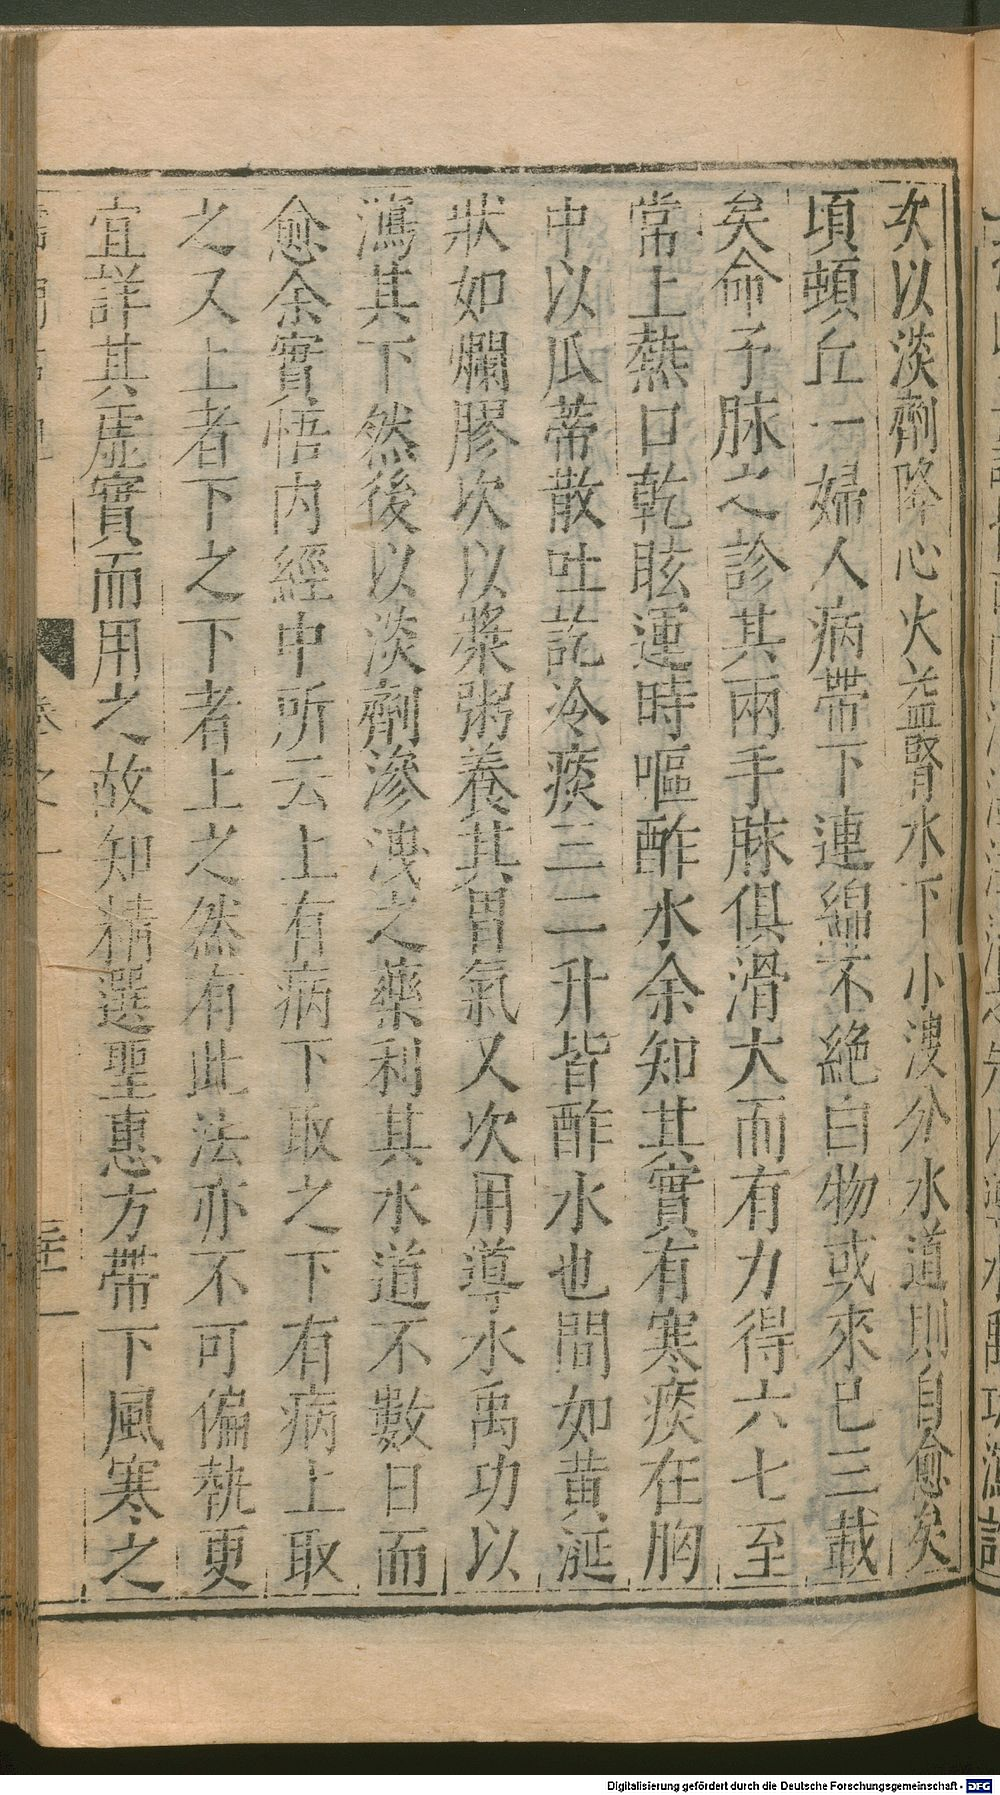 次以淡劑降心火益腎水下小溲分水道則自愈矣
頃頓丘一婦人病帶下連綿不絶白物或來已三載
矣命予脉之診其兩手脉俱滑大而有力得六七至
常上熱口乾眩運時嘔酢水余知其實有寒痰在胸
中以瓜蒂散吐訖冷痰三二升皆酢水也間如黃涎
狀如爛膠次以漿粥養其胃氣又次用導水禹功以
瀉其下然後以淡劑滲洩之藥利其水道不數日而
愈余實悟内經中所云上有病下取之下有病上取
之又上者下之下者上之然有此法亦不可偏執更
宜詳其虛實而用之故知精選聖惠方帶下風寒之
卷之一
三十一
Digitalisierung gefördert durch die Deutsche Forschungsgemeinschaft - DFG